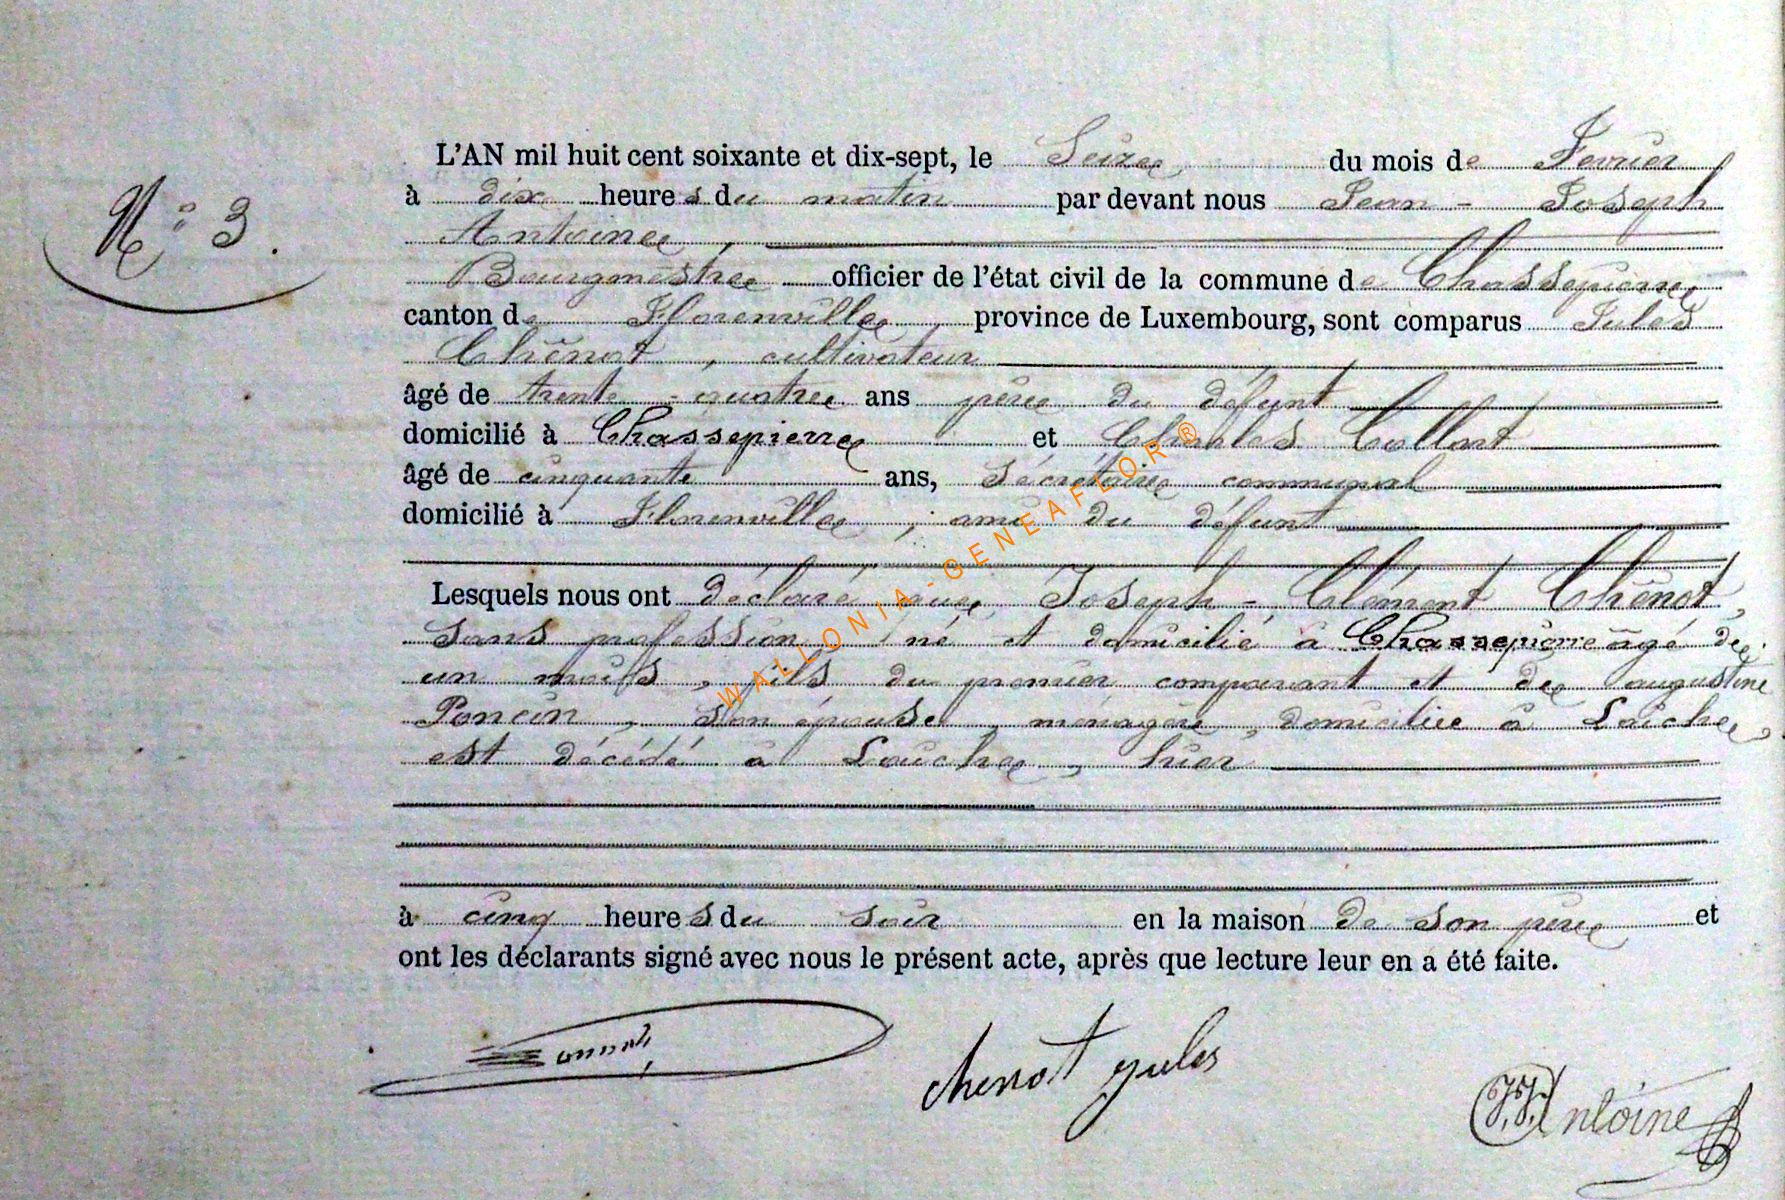 N° 3.
L'AN mil huit cent soixante et dix-sept, le Seize du mois de Fevrier
à dix heures du matin par devant nous Jean - Joseph
Antoine,
Bourgmestre officier de l'état civil de la commune de Chassepierre
canton de Florenville, province de Luxembourg, sont comparus Jules
Chênot, cultivateur
âgé de trente - quatre ans père du défunt
domicilié à Chassepierre et Charles Collart
âgé de cinquante ans, Sécrétaire communal
domicilié à Florenville, ami du défunt
Lesquels nous ont déclaré que Joseph - Clément Chênot,
sans profession né et domicilié à Chassepierre âgé de
un mois, fils du premier comparant et de augustine
Poncin, son épouse, ménagère, domiciliée à Laiche,
est décédé à Laiche, hier
à cinq heures du soir en la maison de son père et
ont les déclarants signé avec nous le présent acte, après que lecture leur en a été faite.
chenot jules
JJAntoine
WALLONIA-GENEAFLOR ®